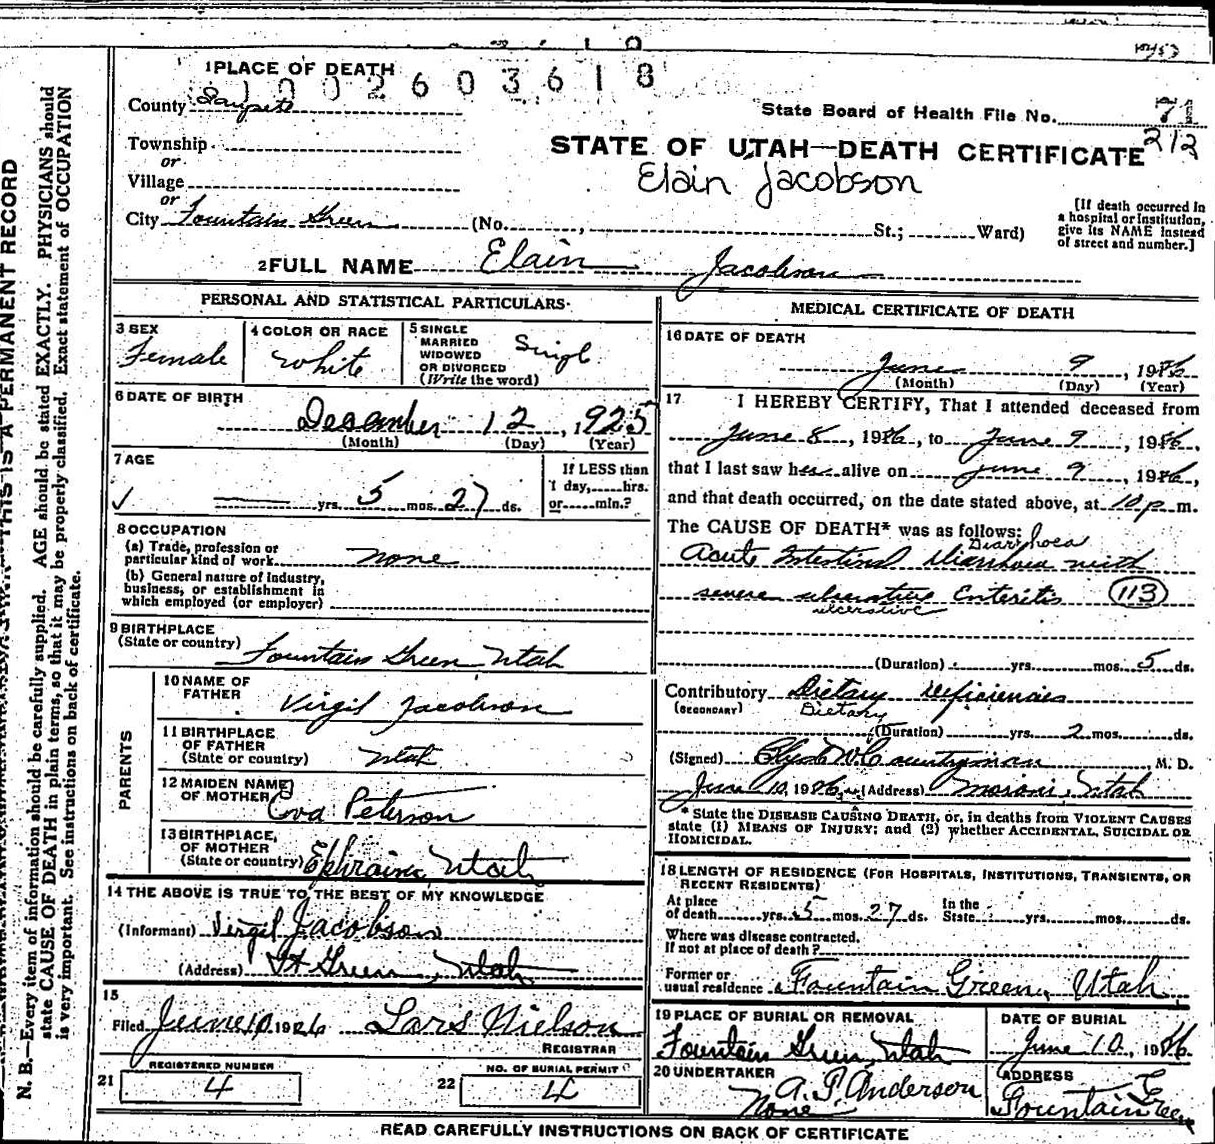 1 PLACE OF DEATH
1002603618
County Sanpete
State Board of Health File No. 71
212
Township
or
Village
or
City Fountain Green (No. St.; Ward)
STATE OF UTAH—DEATH CERTIFICATE
Elain Jacobson
[If death occurred in
a hospital or institution,
give its NAME instead
of street and number.]
2 FULL NAME Elain Jacobson
PERSONAL AND STATISTICAL PARTICULARS
3 SEX
Female
4 COLOR OR RACE
White
5 SINGLE
MARRIED
WIDOWED
OR DIVORCED
(Write the word)
Singl
6 DATE OF BIRTH
December 12, 1925
(Month) (Day) (Year)
7 AGE
yrs. 5 mos. 27 ds.
If LESS than
1 day, hrs.
or min.?
8 OCCUPATION
(a) Trade, profession or
particular kind of work none
(b) General nature of industry,
business, or establishment in
which employed (or employer)
9 BIRTHPLACE
(State or country) Fountain Green Utah
PARENTS
10 NAME OF
FATHER Virgil Jacobson
11 BIRTHPLACE
OF FATHER
(State or country) Utah
12 MAIDEN NAME
OF MOTHER Peterson
13 BIRTHPLACE
OF MOTHER
(State or country) Ephraim, Utah
14 THE ABOVE IS TRUE TO THE BEST OF MY KNOWLEDGE
(Informant) Virgil Jacobson
(Address) Ft Green, Utah
15
Filed June 10, 1926 Lars Nielson
REGISTRAR
REGISTERED NUMBER
21 4
NO. OF BURIAL PERMIT
22 4
MEDICAL CERTIFICATE OF DEATH
16 DATE OF DEATH
June 9, 1926
(Month) (Day) (Year)
17 I HEREBY CERTIFY, That I attended deceased from
June 8, 1926, to June 9, 1926,
that I last saw her alive on June 9, 1926,
and that death occurred, on the date stated above, at 10 p m.
The CAUSE OF DEATH* was as follows:
Diarrhoea
Acute Intestinal Diarrhoea with
severe ulcerative Enteritis 113
ulcerative
(Duration) yrs. mos. 5 ds.
Contributory Dietary deficiencies
(SECONDARY) Dietary
(Duration) yrs. 2 mos. ds.
(Signed) Countryman, M. D.
June 10, 1926 (Address) Moroni, Utah
* State the DISEASE CAUSING DEATH, or, in deaths from VIOLENT CAUSES
state (1) MEANS OF INJURY; and (2) whether ACCIDENTAL, SUICIDAL OR
HOMICIDAL.
18 LENGTH OF RESIDENCE (FOR HOSPITALS, INSTITUTIONS, TRANSIENTS, OR
RECENT RESIDENTS)
At place
of death yrs. 5 mos. 27 ds. In the
State yrs. mos. ds.
Where was disease contracted,
If not at place of death?
Former or
usual residence Fountain Green, Utah
19 PLACE OF BURIAL OR REMOVAL
Fountain Green, Utah
DATE OF BURIAL
June 10, 1926
20 UNDERTAKER
A. P. Anderson
None
ADDRESS
Fountain Green
READ CAREFULLY INSTRUCTIONS ON BACK OF CERTIFICATE
THIS IS A PERMANENT RECORD
N. B.—Every item of information should be carefully supplied. AGE should be stated EXACTLY. PHYSICIANS should
state CAUSE OF DEATH in plain terms, so that it may be properly classified. Exact statement of OCCUPATION
is very important. See instructions on back of certificate.